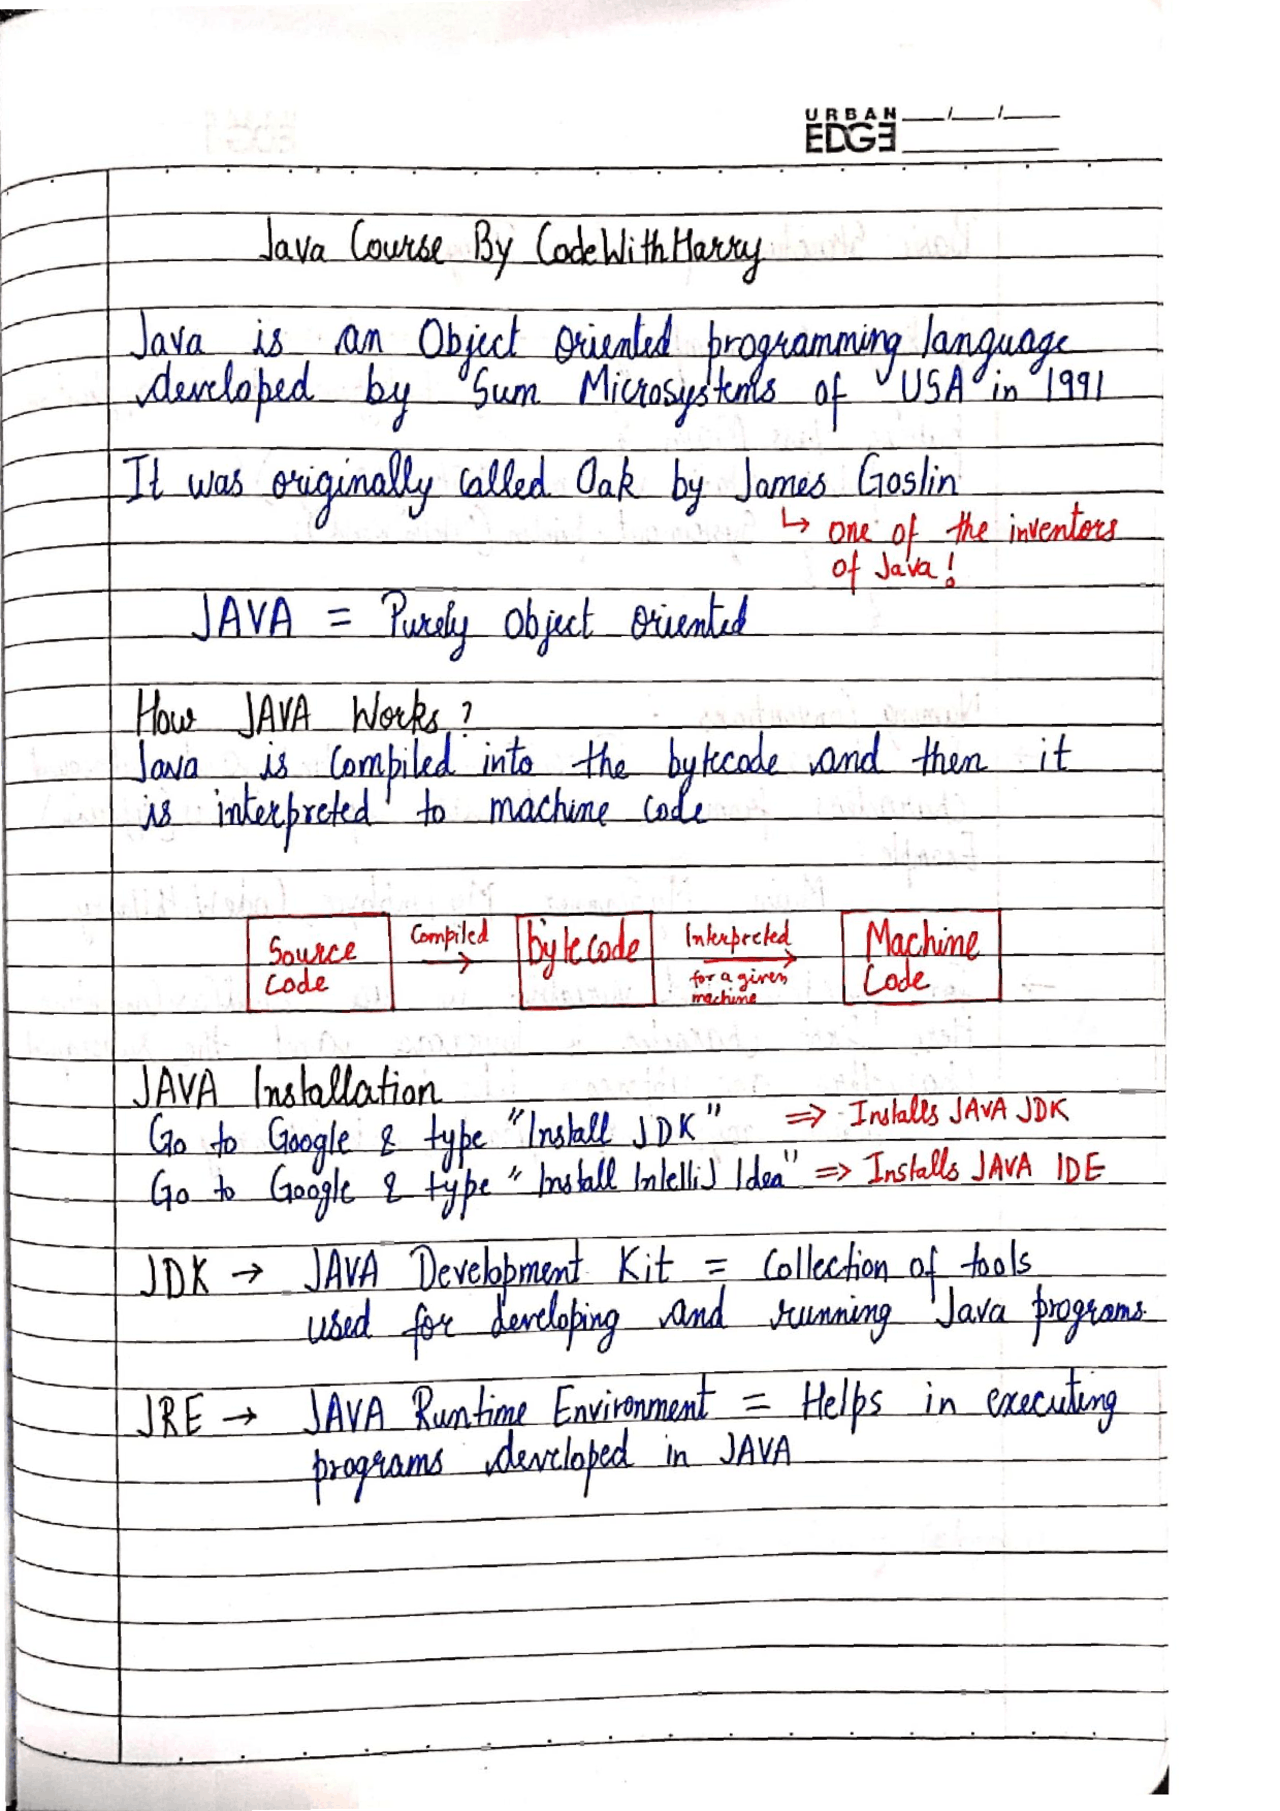 URBAN
EDGE
Java Course By CodeWithHarry
Java is an Object Oriented programming language
developed by Sum Microsystems of USA in 1991
It was originally called Oak by James Goslin
↳ one of the inventors
of Java!
JAVA = Purely Object Oriented
How JAVA Works?
Java is compiled into the bytecode and then it
is interpreted to machine code
Source Code Compiled → bytecode Interpreted → for a given machine Machine Code
JAVA Installation
Go to Google & type "Install JDK" ⇒ Installs JAVA JDK
Go to Google & type "Install IntelliJ Idea" ⇒ Installs JAVA IDE
JDK → JAVA Development Kit = Collection of tools
used for developing and running Java programs.
JRE → JAVA Runtime Environment = Helps in executing
programs developed in JAVA